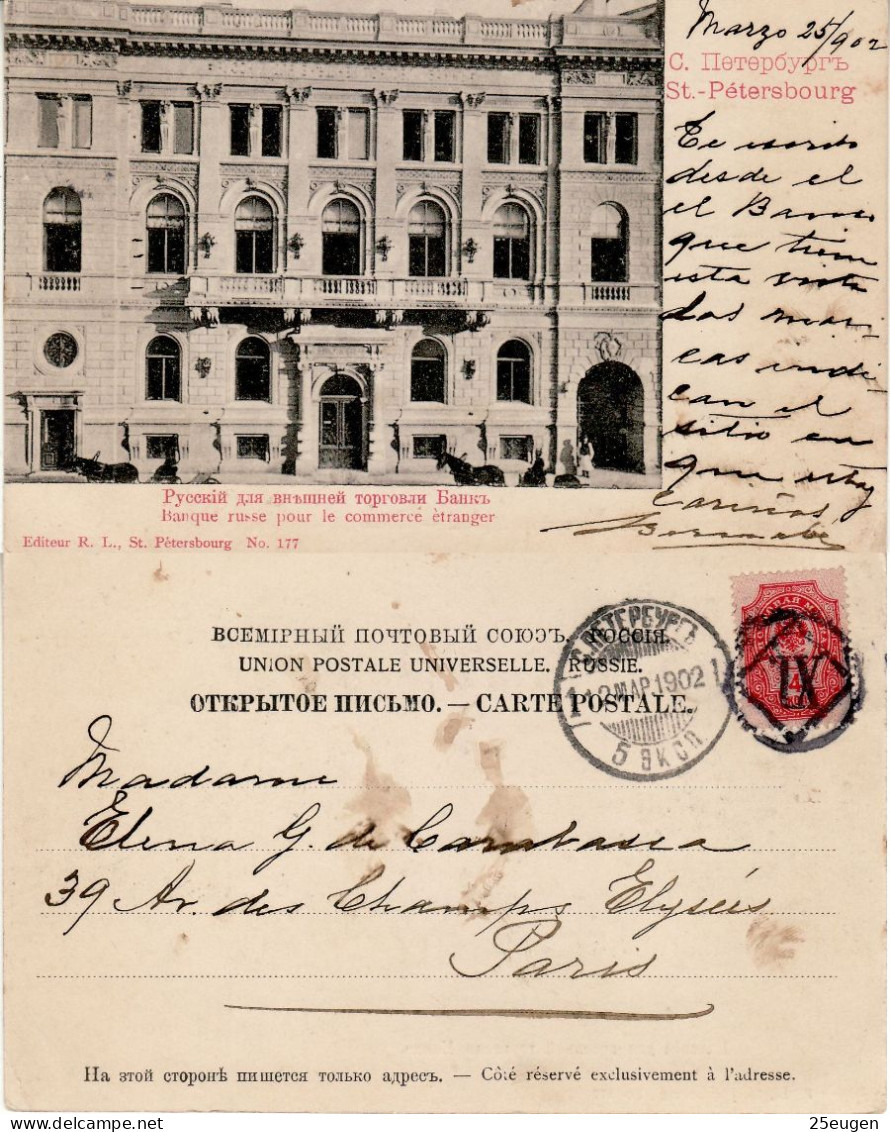 Marzo 25/902
С. Петербургъ
St.-Pétersbourg
Te escribo
desde el
el Banco
que tiene
esta vista
Las mar-
cas indi-
can el
sitio en
que estoy
Cariños
Bernabé
Русскій для внѣшней торговли Банкъ
Banque russe pour le commerce ètranger
Editeur R. L., St. Pétersbourg No. 177
ВСЕМІРНЫЙ ПОЧТОВЫЙ СОЮЗЪ. РОССІЯ.
UNION POSTALE UNIVERSELLE. RUSSIE.
ОТКРЫТОЕ ПИСЬМО. — CARTE POSTALE.
С. ПЕТЕРБУРГЪ
12 МАР. 1902
5 ЭКСП.
IX
Madame
Elena G. de Carabassa
39 Av. des Champs Elysées
Paris
На этой сторонѣ пишется только адресъ. — Côté réservé exclusivement à l'adresse.
25eugen